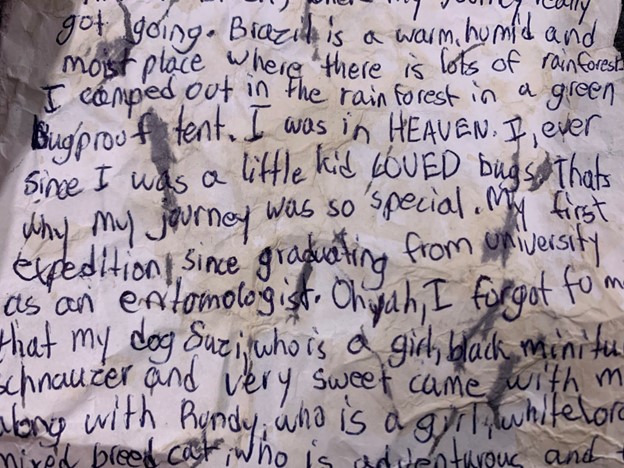 where my journey really
got going. Brazil is a warm, humid and
moist place where there is lots of rainforest
I camped out in the rainforest in a green
Bugproof tent. I was in HEAVEN. I, ever
since I was a little kid LOVED bugs. Thats
why my journey was so special. My first
expedition since graduating from university
as an entomologist. Oh yah, I forgot to m
that my dog Suzi, who is a girl, black minitu
schnauzer and very sweet came with m
along with Randy, who is a girl, white
mixed breed cat, who is adventurous and